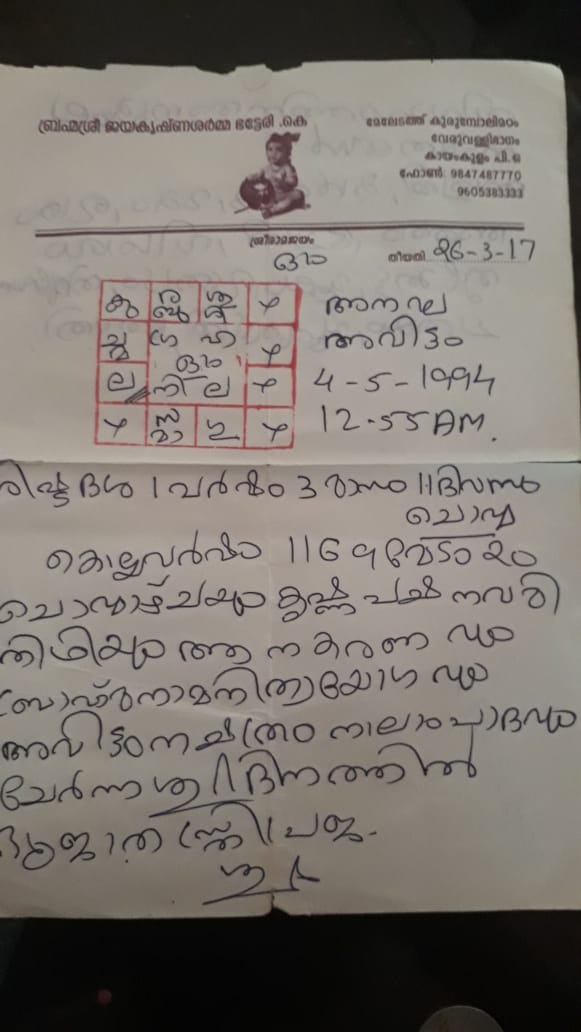 ബ്രഹ്മശ്രീ ജയകൃഷ്ണശർമ്മ ഭട്ടേരി .കെ
മേലേടത്ത് കുരുമ്പോലിമഠം
വേരുവള്ളിഭാഗം
കായംകുളം പി. ഒ
ഫോൺ: 9847487770
9605383333
ശ്രീരാമജയം
ഓം
തീയതി 26-3-17
കു ര ബു ശു
ഗ്ര ഹ
ഓം
ല നി ല
മാ ഗു
അനഘ
അവിട്ടം
4-5-1994
12.55 AM.
ശിഷ്ട ദശ 1 വർഷം 3 മാസം 11 ദിവസം
ചൊവ്വ
കൊല്ലവർഷം 1169 മേടം 20
ചൊവ്വാഴ്ചയും കൃഷ്ണ പക്ഷ നവമി
തിഥിയും ആന കരണവും
ബ്രാഹ്മനാമനിത്യയോഗവും
അവിട്ടം നക്ഷത്രം നാലാം പാദവും
ചേർന്ന ശുഭദിനത്തിൽ
സ്ത്രീപ്രജ.
ശുഭം